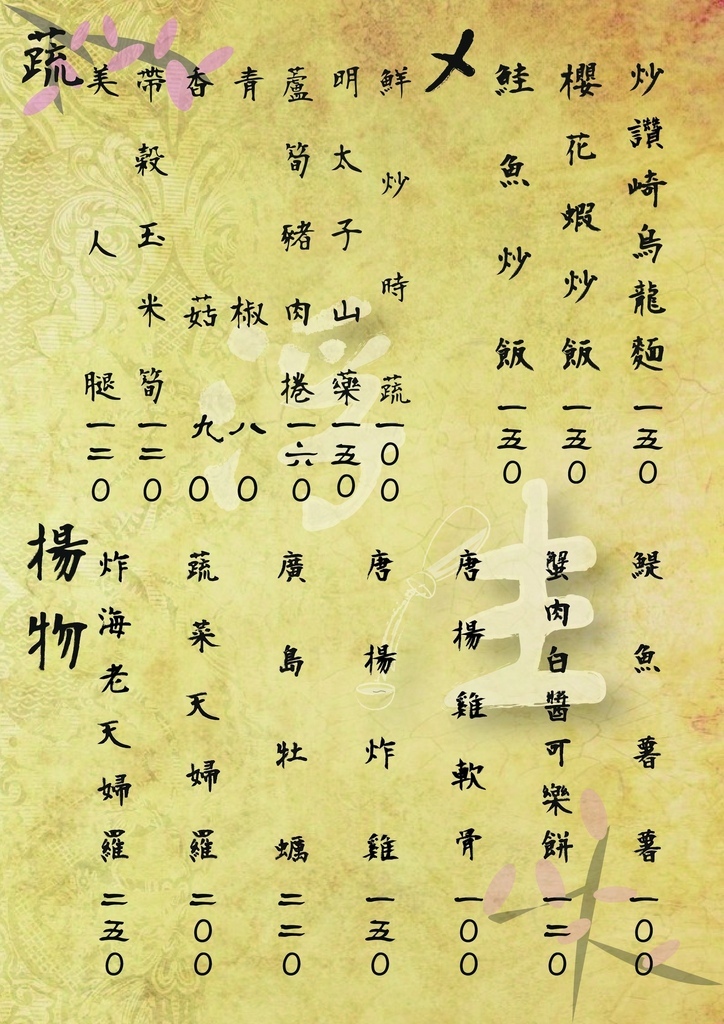 蔬
美人腿一二〇
帶穀玉米筍一二〇
香菇九〇
青椒八〇
蘆筍豬肉捲一六〇
明太子山藥一五〇
鮮炒時蔬一〇〇
〆
鮭魚炒飯一五〇
櫻花蝦炒飯一五〇
炒讚崎烏龍麵一五〇
楊物
炸海老天婦羅二五〇
蔬菜天婦羅二〇〇
廣島牡蠣二二〇
唐楊炸雞一五〇
唐楊雞軟骨一〇〇
蟹肉白醬可樂餅一二〇
鯷魚薯薯一〇〇
浮生